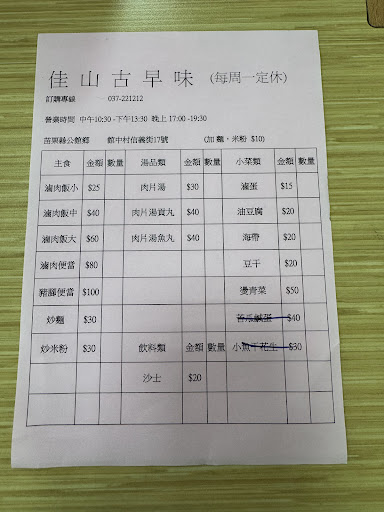 佳山古早味 (每周一定休)
訂購專線 037-221212
營業時間 中午10:30 -下午13:30 晚上 17:00 -19:30
苗栗縣公館鄉 館中村信義街17號 (加 麵，米粉 $10)
主食 金額 數量 湯品類 金額 數量 小菜類 金額 數量
滷肉飯小 $25 肉片湯 $30 滷蛋 $15
滷肉飯中 $40 肉片湯貢丸 $40 油豆腐 $20
滷肉飯大 $60 肉片湯魚丸 $40 海帶 $20
滷肉便當 $80 豆干 $20
豬腳便當 $100 燙青菜 $50
炒麵 $30 苦瓜鹹蛋 $40
炒米粉 $30 飲料類 金額 數量 小魚干花生 $30
沙士 $20